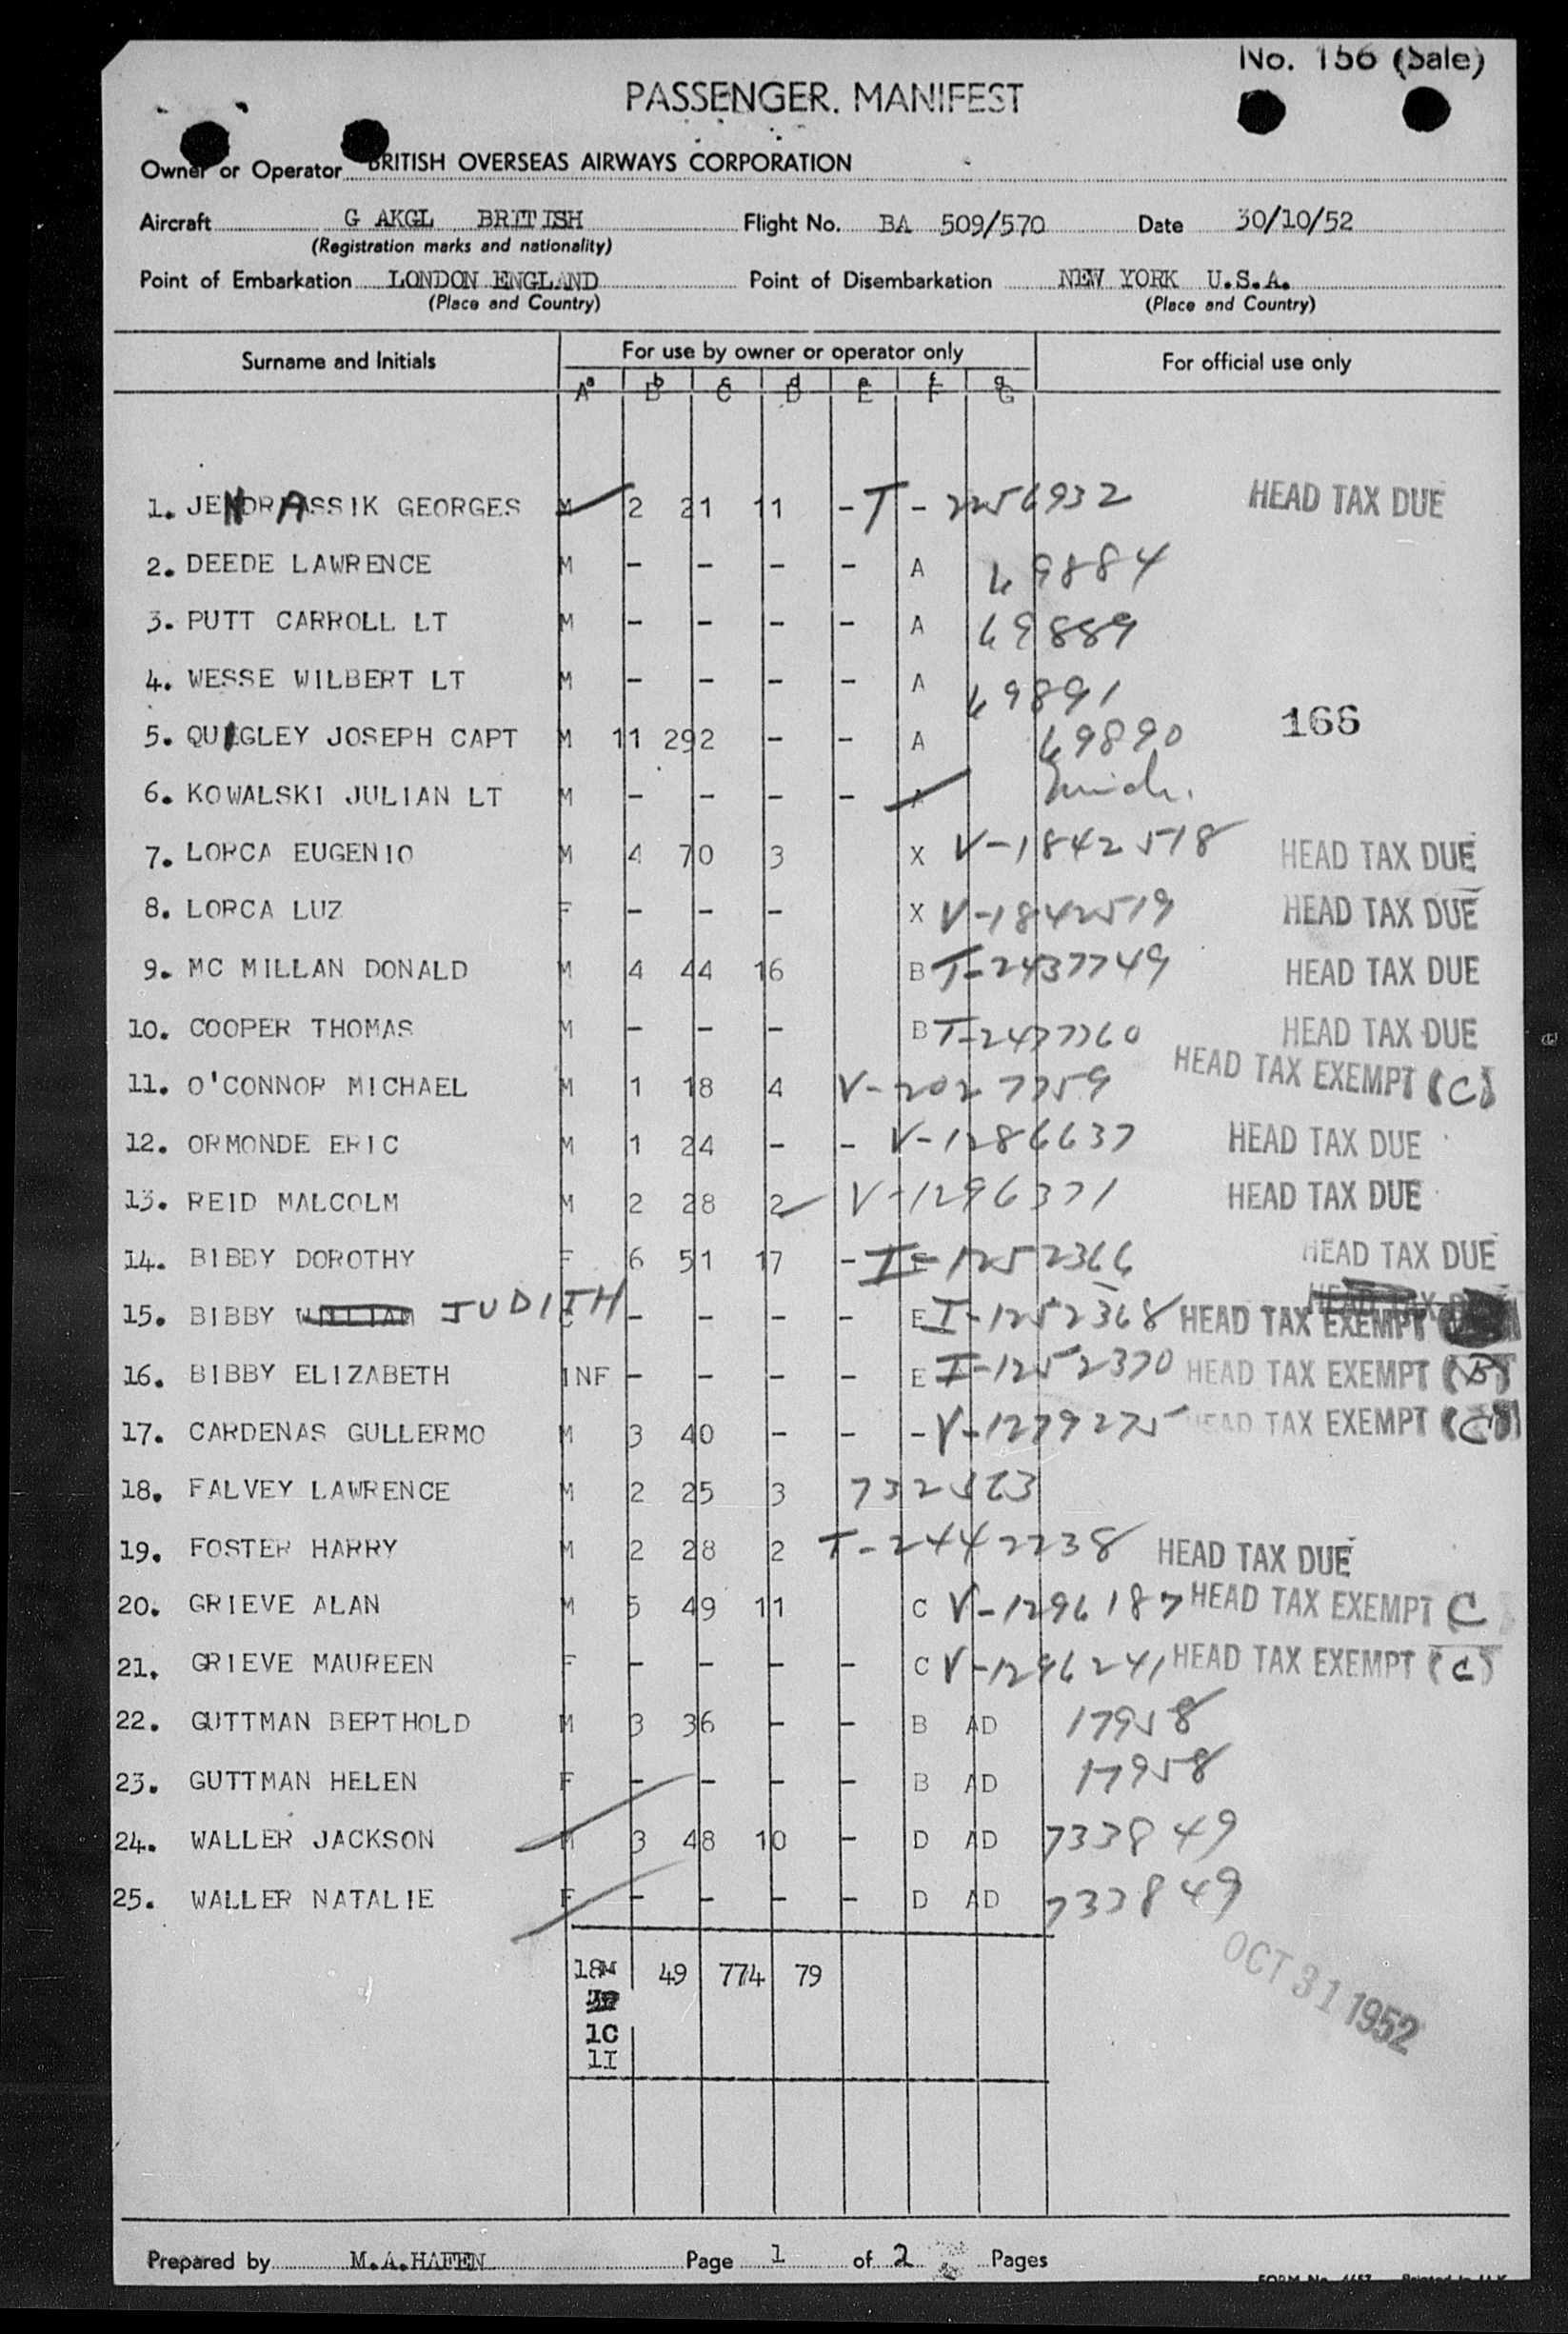 No. 156 (Sale)
PASSENGER. MANIFEST
Owner or Operator BRITISH OVERSEAS AIRWAYS CORPORATION
Aircraft G AKGL BRITISH Flight No. BA 509/570 Date 30/10/52
(Registration marks and nationality)
Point of Embarkation LONDON ENGLAND Point of Disembarkation NEW YORK U.S.A.
(Place and Country) (Place and Country)
Surname and Initials For use by owner or operator only For official use only
a b c d e f g
A B C D E F G
1. JENDRASSIK GEORGES M 2 21 11 - T - 2256932 HEAD TAX DUE
2. DEEDE LAWRENCE M - - - - A 69884
3. PUTT CARROLL LT M - - - - A 69889
4. WESSE WILBERT LT M - - - - A 69891
5. QUIGLEY JOSEPH CAPT M 11 292 - - A 69890 166
6. KOWALSKI JULIAN LT M - - - - A
7. LORCA EUGENIO M 4 70 3 X V-1842518 HEAD TAX DUE
8. LORCA LUZ F - - - X V-1842519 HEAD TAX DUE
9. MC MILLAN DONALD M 4 44 16 B T-2437749 HEAD TAX DUE
10. COOPER THOMAS M - - - B T-2437760 HEAD TAX DUE
11. O'CONNOR MICHAEL M 1 18 4 V-2027759 HEAD TAX EXEMPT (C)
12. ORMONDE ERIC M 1 24 - - V-1286637 HEAD TAX DUE
13. REID MALCOLM M 2 28 2 V-1296371 HEAD TAX DUE
14. BIBBY DOROTHY F 6 51 17 - I-1252366 HEAD TAX DUE
15. BIBBY WILLIAM JUDITH C - - - - E I-1252368 HEAD TAX EXEMPT
16. BIBBY ELIZABETH INF - - - - E I-1252370 HEAD TAX EXEMPT (B)
17. CARDENAS GULLERMO M 3 40 - - - V-1279275 HEAD TAX EXEMPT (C)
18. FALVEY LAWRENCE M 2 25 3
19. FOSTER HARRY M 2 28 2 T-2442238 HEAD TAX DUE
20. GRIEVE ALAN M 5 49 11 C V-1296187 HEAD TAX EXEMPT C
21. GRIEVE MAUREEN F - - - - C V-1296241 HEAD TAX EXEMPT (C)
22. GUTTMAN BERTHOLD M 3 36 - - B AD 17958
23. GUTTMAN HELEN F - - - - B AD 17958
24. WALLER JACKSON M 3 48 10 - D AD 733849
25. WALLER NATALIE F - - - - D AD 733849
18M 49 774 79
1C
1I
OCT 31 1952
Prepared by M.A.HAFEN Page 1 of 2 Pages